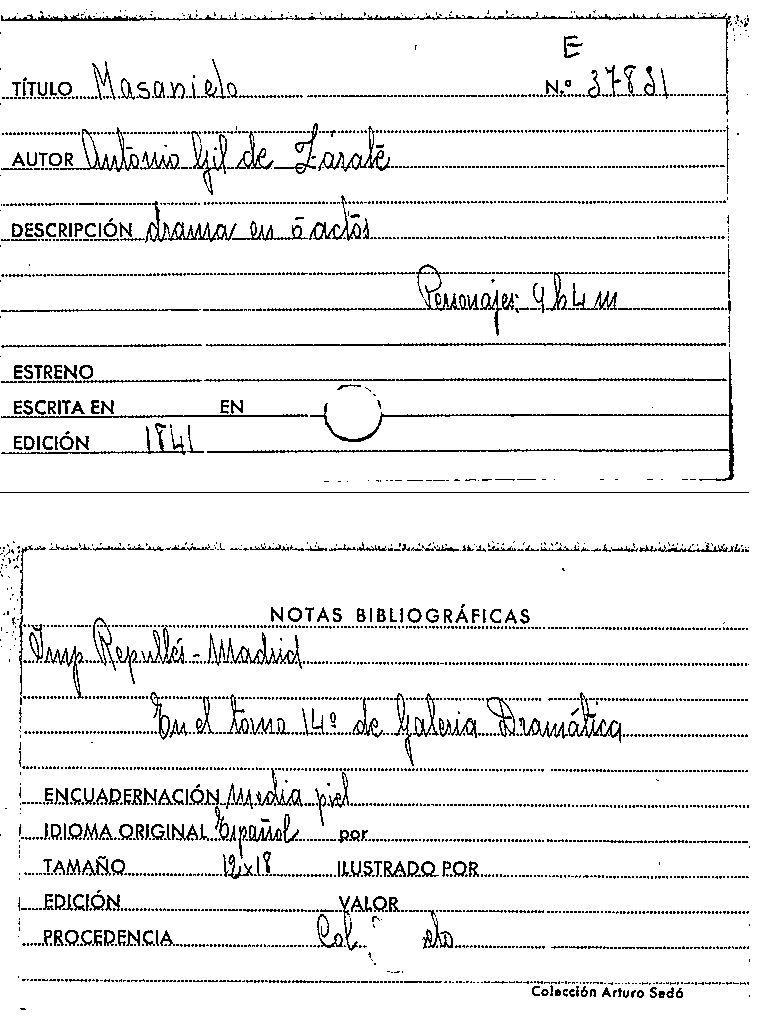 E
TÍTULO Masanielo N.º 37831
AUTOR Antonio Gil de Zárate
DESCRIPCIÓN drama en 5 actos
Personajes: 9 h 4 m
ESTRENO
ESCRITA EN EN
EDICIÓN 1841
NOTAS BIBLIOGRÁFICAS
Imp Repullés - Madrid
En el tomo 14º de Galeria Dramática
ENCUADERNACIÓN Media piel
IDIOMA ORIGINAL Español por
TAMAÑO 12x18 ILUSTRADO POR
EDICIÓN VALOR
PROCEDENCIA Col.
Colección Arturo Sedó